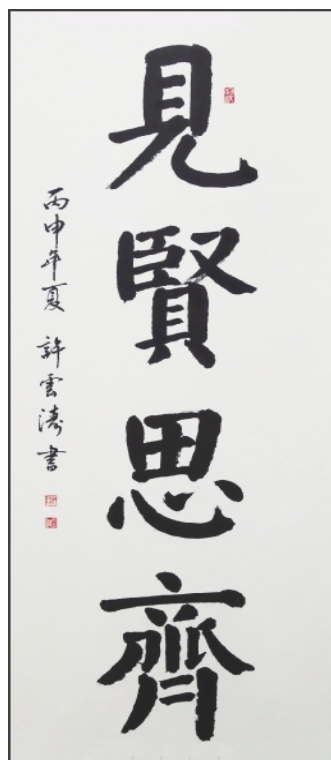 見賢思齊
丙申年夏 許雲濤書